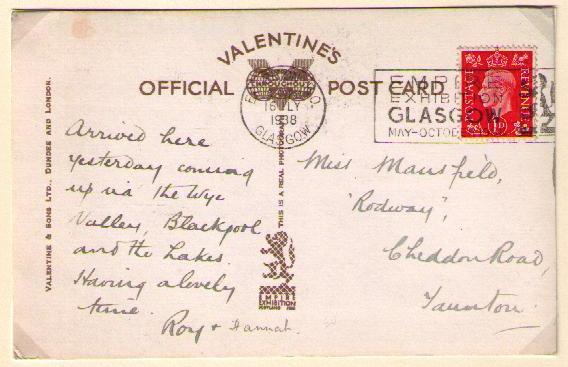 VALENTINE'S
OFFICIAL POST CARD
16 JLY
1938
GLASGOW
EXHIBITION
GLASGOW
MAY-OCTOB
POSTAGE REVENUE
1D
VALENTINE & SONS LTD., DUNDEE AND LONDON.
THIS IS A REAL PHOTOGRAPH
EMPIRE
EXHIBITION
SCOTLAND 1938
Arrived here
yesterday coming
up via the Wye
Valley, Blackpool
and the Lakes.
Having a lovely
time.
Roy & Hannah.
Miss Mansfield,
"Rodway",
Cheddon Road,
Taunton.